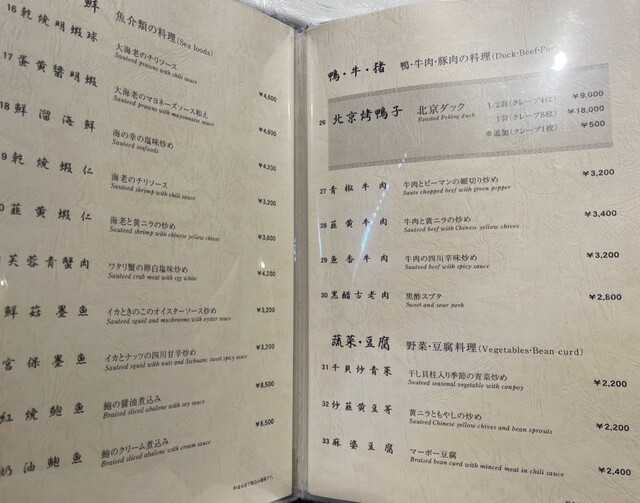 鮮 魚介類の料理(Sea foods)
16 乾焼明蝦球 大海老のチリソース ¥4,600
Sauteed prawns with chili sauce
17 蛋黄醬明蝦 大海老のマヨネーズソース和え ¥4,600
Sauteed prawns with mayonnaise sauce
18 鮮溜海鮮 海の幸の塩味炒め ¥4,200
Sauteed seafoods
9 乾焼蝦仁 海老のチリソース ¥3,200
Sauteed shrimp with chili sauce
0 韮黄蝦仁 海老と黄ニラの炒め ¥3,600
Sauteed shrimp with chinese yellow chives
芙蓉青蟹肉 ワタリ蟹の卵白塩味炒め ¥4,200
Sauteed crab meat with egg white
鮮菇墨魚 イカときのこのオイスターソース炒め ¥3,200
Sauteed squid and mushrooms with oyster sauce
宮保墨魚 イカとナッツの四川甘辛炒め ¥3,200
Sauteed squid with nuts and Sichuanc sweet spicy sauce
紅焼鮑魚 鮑の醤油煮込み ¥8,500
Braised sliced abalone with soy sauce
奶油鮑魚 鮑のクリーム煮込み ¥8,500
Braised sliced abalone with cream sauce
鴨・牛・猪 鴨・牛肉・豚肉の料理(Duck・Beef・Po
26 北京烤鴨子 北京ダック 1/2羽(クレープ4枚) ¥9,000
Roasted Peking duck 1羽(クレープ8枚) ¥18,000
※追加(クレープ1枚) ¥500
27 青椒牛肉 牛肉とピーマンの細切り炒め ¥3,200
Saute chopped beef with green pepper
28 韮黄牛肉 牛肉と黄ニラの炒め ¥3,400
Sauteed beef with Chinese yellow chives
29 魚香牛肉 牛肉の四川辛味炒め ¥3,200
Sauteed beef with spicy sauce
30 黒醋古老肉 黒酢スブタ ¥2,800
Sweet and sour pork
蔬菜・豆腐 野菜・豆腐料理(Vegetables・Bean curd)
31 干貝炒青菜 干し貝柱入り季節の青菜炒め ¥2,200
Sauteed seasonal vegetable with conpoy
32 炒韮黄豆芽 黄ニラともやしの炒め ¥2,200
Sauteed Chinese yellow chives and bean sprouts
33 麻婆豆腐 マーボー豆腐 ¥2,400
Braised bean curd with minced meat in chili sauce